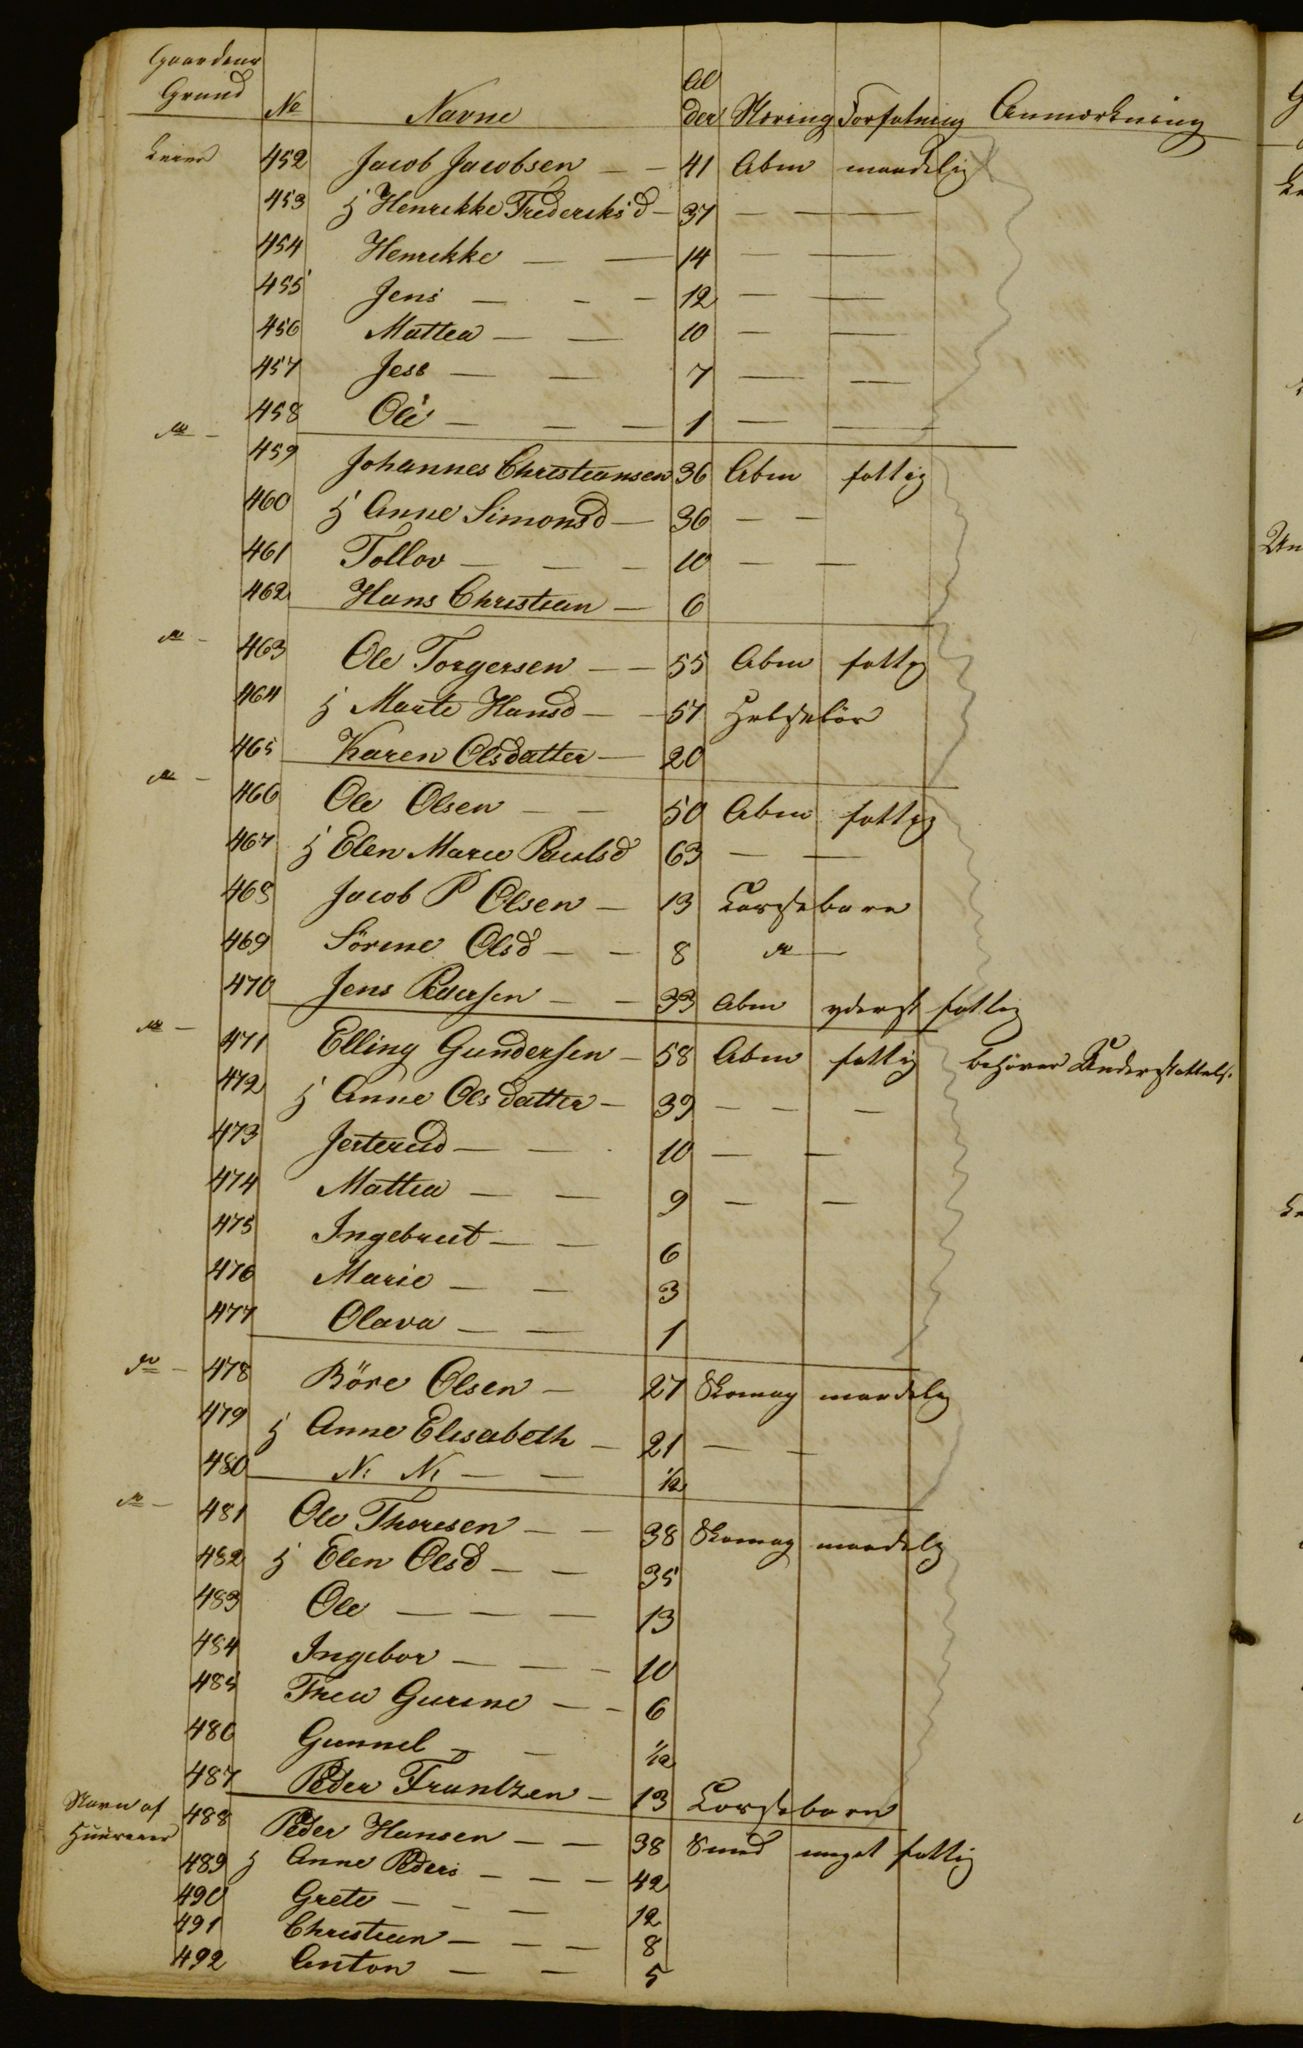 Gaardens Grund | No | Navne | Al der | Næring | Forfatning | Anmærkning
Leier 452 Jacob Jacobsen — — 41 Abm maadelig
453 H Henrikke Frederiksd — 37 — — —
454 Henrikke — — 14 — —
455 Jens — - — 12 — —
456 Mattea — — 10 — —
457 Jess — — 7 — —
458 Ole — — — 1 — —
do — 459 Johannes Christiansen 36 Abm fattig
460 H Anne Simonsd — 36 — —
461 Tollov — — — 10 — —
462 Hans Christian — 6
do — 463 Ole Torgersen — — 55 Abm fattig
464 H Marte Hansd — — 57
465 Karen Olsdatter — 20
do — 466 Ole Olsen — — 50 Abm fattig
467 H Elen Marie Paulsd 63 — —
468 Jacob P Olsen — 13 Lægsebarn
469 Sörine Olsd — — 8 do —
470 Jens Pedersen — — 33 Abm yderst fattig
do — 471 Elling Gundersen — 58 Abm fattig behöver Understöttels.
472 H Anne Olsdatter — 39 — — —
473 Jerterud — — 10 — —
474 Mattea — — 9 — —
475 Ingebret — — 6
476 Marie — — 3
477 Olava — — 1
do — 478 Böre Olsen — 27 Skomag maadelig
479 H Anne Elisabeth — 21 — —
480 N: N: — — 1/2
do — 481 Ole Thoresen — — 38 Skomag maadelig
482 H Elen Olsd — — 35
483 Ole — — — 13
484 Ingebor — — - 10
485 Thea Gurine — - 6
486 Gunnel — — 1/2
487 Peder Frantzen — 13 Lægsebarn
Navn af 488 Peder Hansen — — 38 Smed meget fattig
489 H Anne Peders — — — 42
490 Grete — - — 12
491 Christian — — — 8
492 Anton — — 5